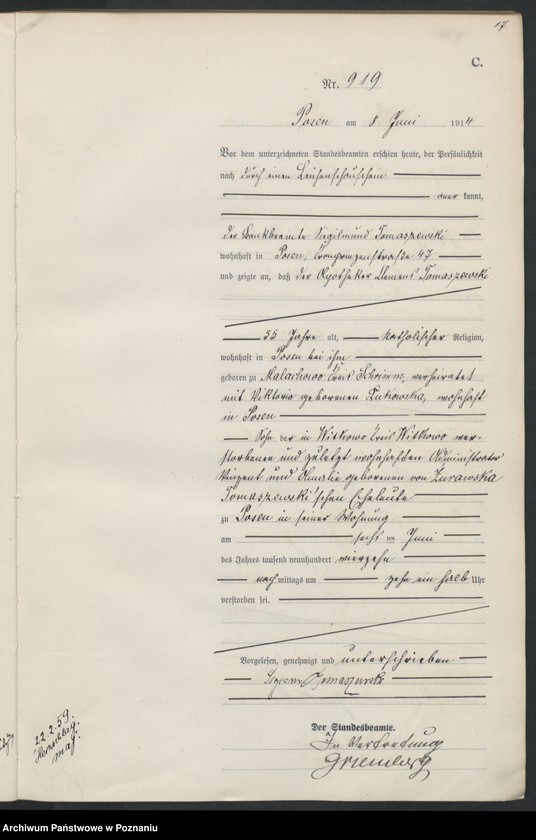 17
C.
Nr. 919
Posen am 8 Juni 1914
Vor dem unterzeichneten Standesbeamten erschien heute, der Persönlichkeit
nach durch einen Leichenschauschein
aner kannt,
der Bankbeamte Siegismund Tomaszewski
wohnhaft in Posen, Kronprinzenstraße 47
und zeigte an, daß der Apotheker Clemens Tomaszewski
55 Jahre alt, katholischer Religion,
wohnhaft in Posen bei ihm
geboren zu Malachowo Kreis Schrimm, verheiratet
mit Viktoria geborenen Lukowska, wohnhaft
in Posen
Sohn der in Witkowo Kreis Witkowo ver-
storbenen und zuletzt wohnhaften Administrator
Vinzent und Amalie geborenen von Zurawska
Tomaszewski'schen Eheleute
zu Posen in seiner Wohnung
am sechs ten Juni
des Jahres tausend neunhundert vierzehn
nach mittags um zehn ein halb Uhr
verstorben sei.
Vorgelesen, genehmigt und unterschrieben
Tomaszewski
Der Standesbeamte.
In Vertretung
22.2.59.
Archiwum Państwowe w Poznaniu